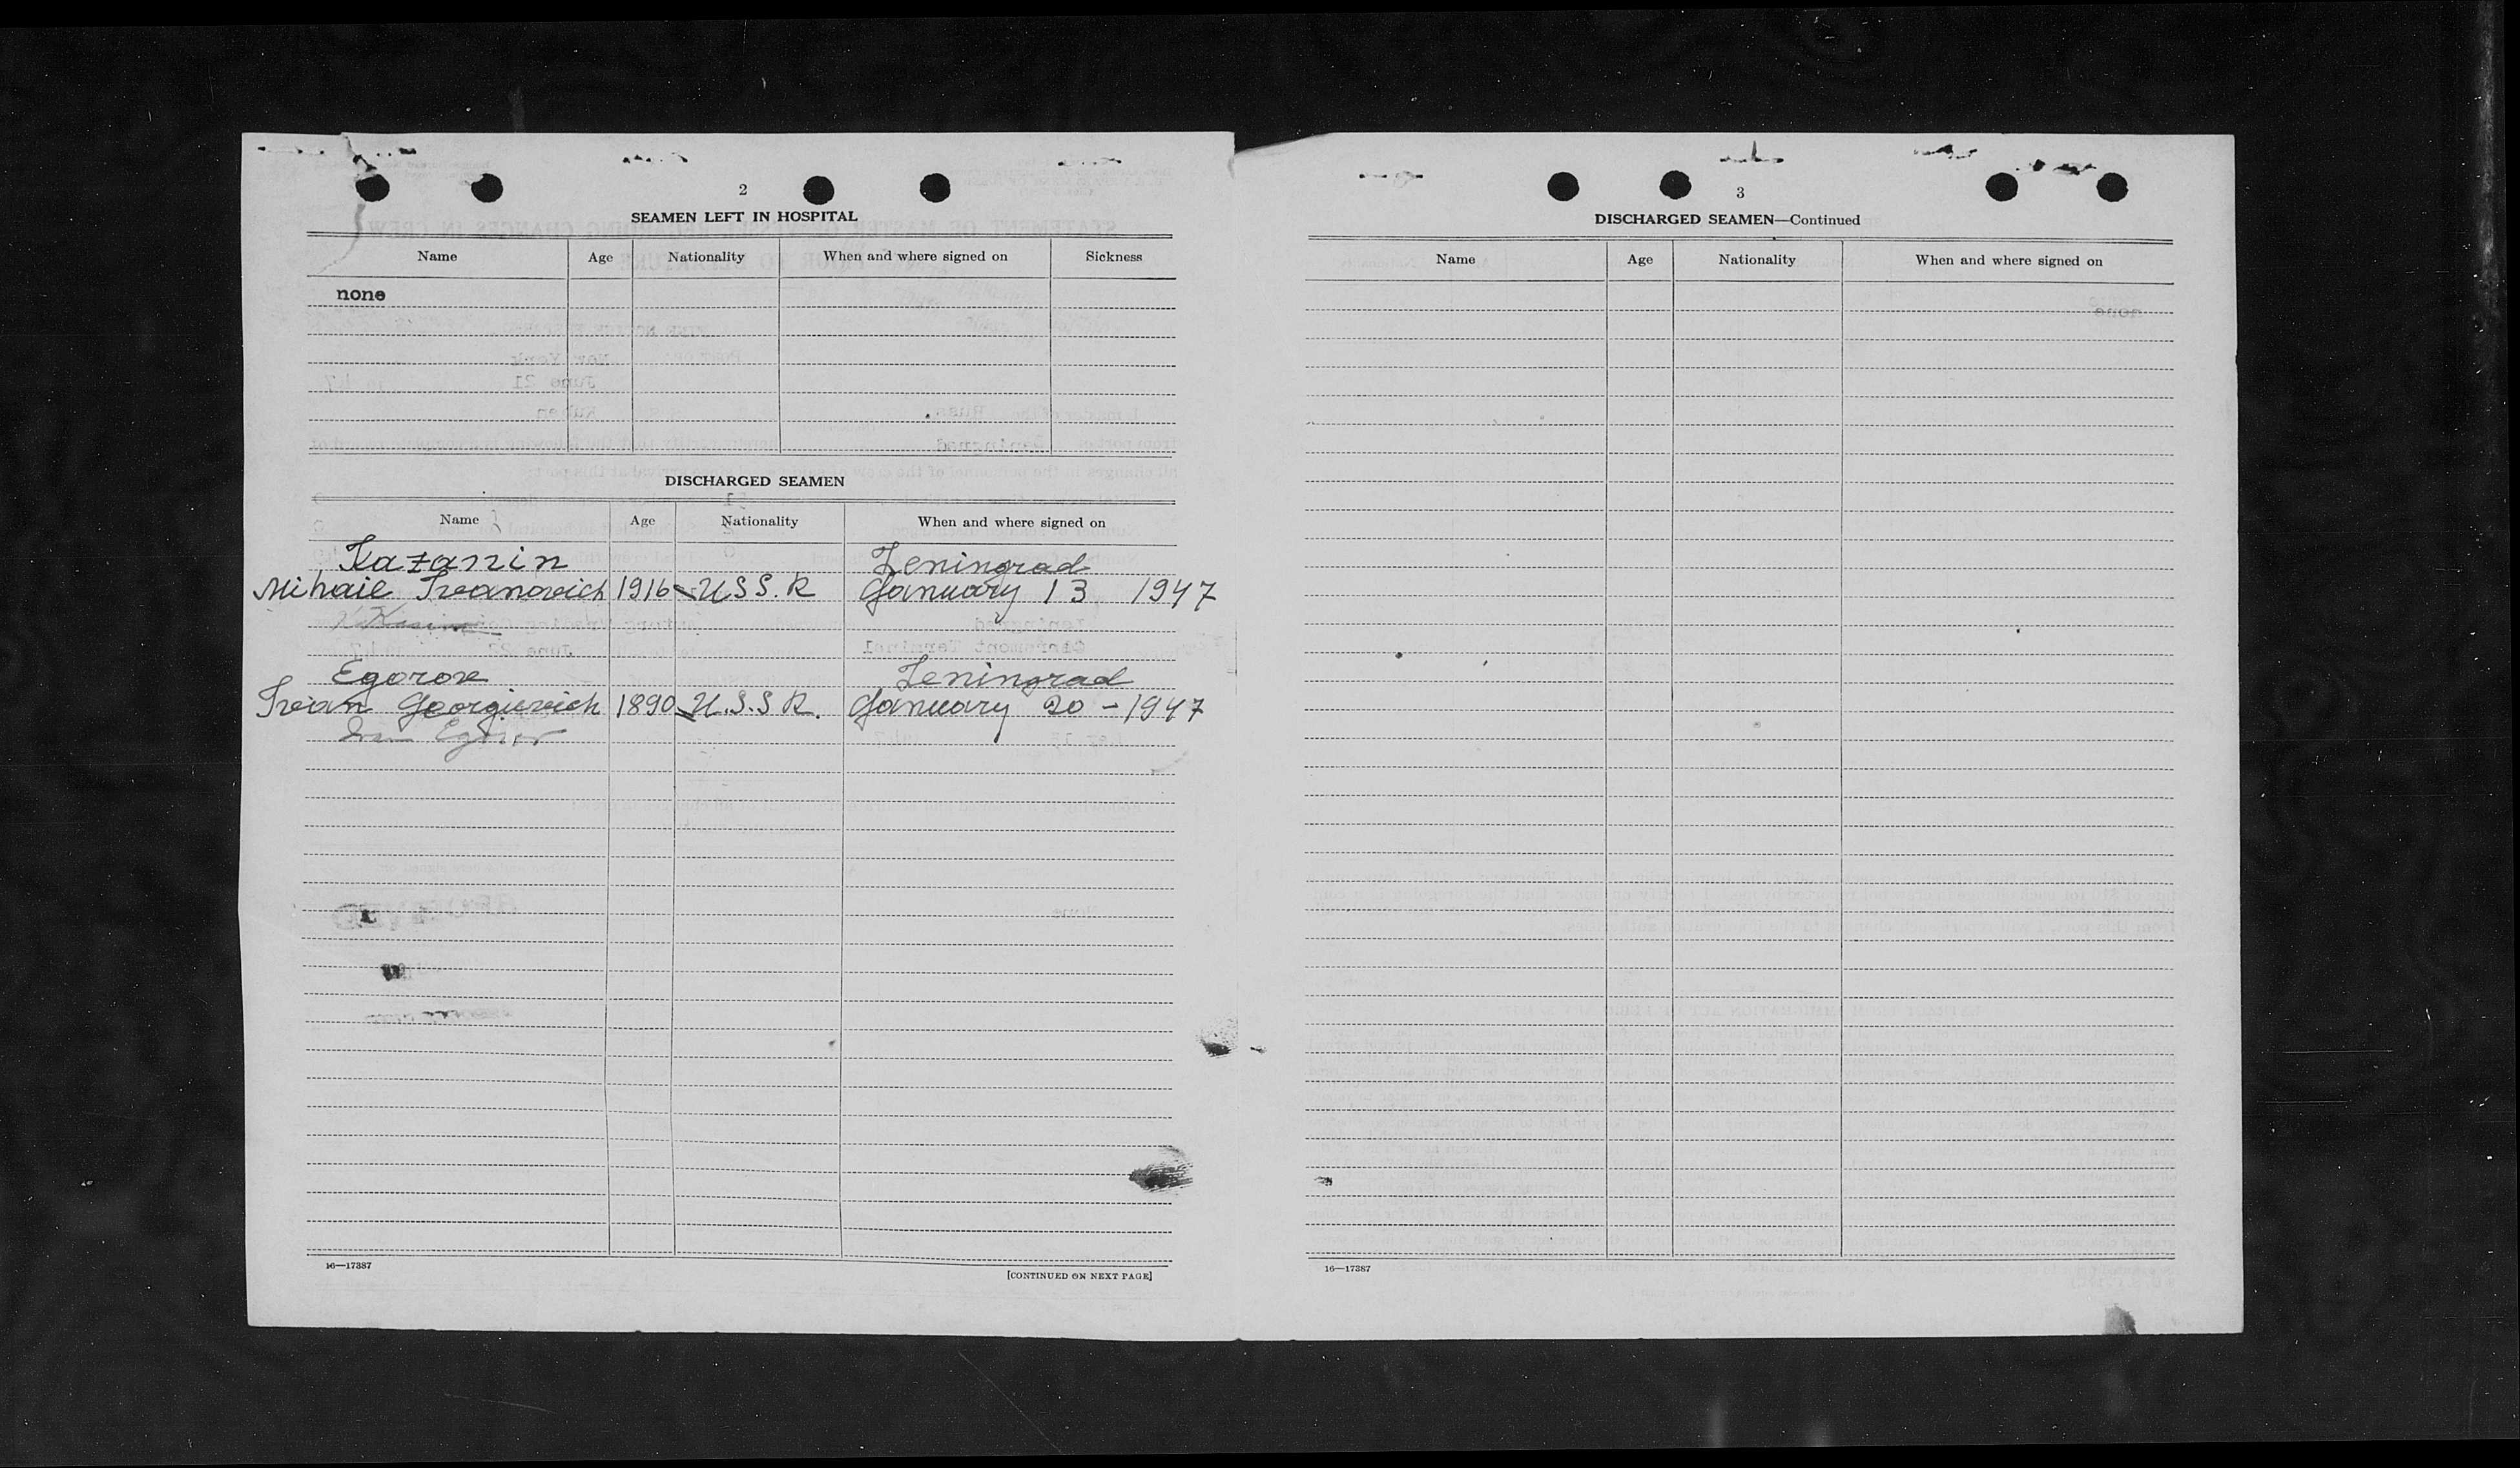 2
SEAMEN LEFT IN HOSPITAL
Name Age Nationality When and where signed on Sickness
none
DISCHARGED SEAMEN
Name Age Nationality When and where signed on
Kazanin Leningrad
Mihail Ivanovich 1916 USS.R January 13 1947
Egorov Leningrad
Ivan Georgievich 1890 U.S.S R. January 20 - 1947
Egorov
16—17387
[CONTINUED ON NEXT PAGE]
3
DISCHARGED SEAMEN—Continued
Name Age Nationality When and where signed on
16—17387